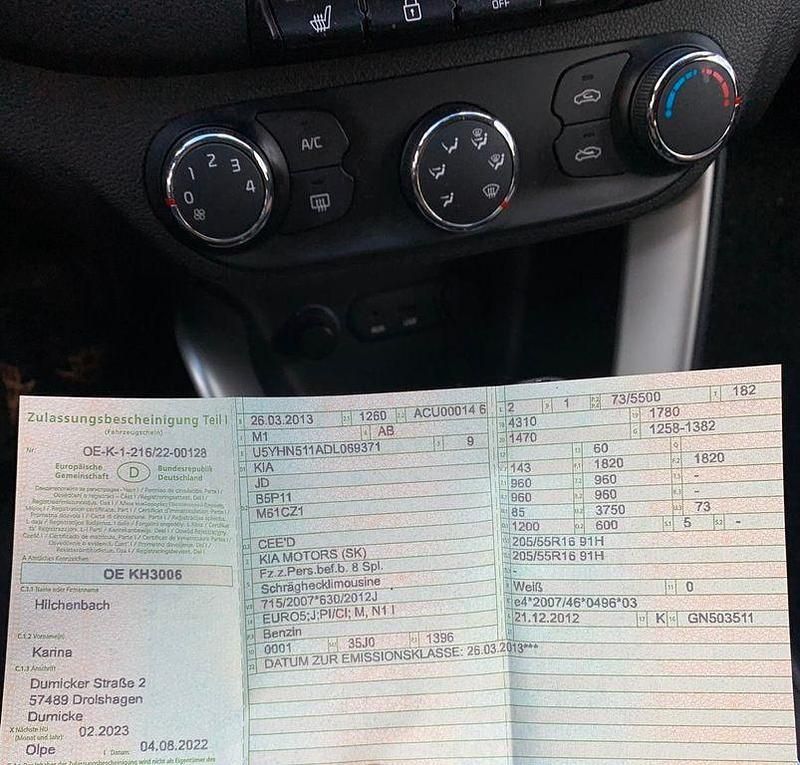 OFF
A/C
0 1 2 3 4
Zulassungsbescheinigung Teil I
(Fahrzeugschein)
Nr. OE-K-1-216/22-00128
Europäische Gemeinschaft
D
Bundesrepublik Deutschland
A Amtliches Kennzeichen
OE KH3006
C.1.1 Name oder Firmenname
Hilchenbach
C.1.2 Vorname(n)
Karina
C.1.3 Anschrift
Dumicker Straße 2
57489 Drolshagen
Dumicke
X Nächste HU (Monat und Jahr)
02.2023
Olpe
Datum: 04.08.2022
26.03.2013 2.1 1260 2.2 ACU00014 6
M1 AB
U5YHN511ADL069371 3 9
KIA
JD
B5P11
M61CZ1
CEE'D
KIA MOTORS (SK)
Fz.z.Pers.bef.b. 8 Spl.
Schräghecklimousine
715/2007*630/2012J
EURO5;J;PI/CI; M, N1 I
Benzin
0001 35J0 1396
DATUM ZUR EMISSIONSKLASSE: 26.03.2013***
L 2 9 1 P.2 P.4 73/5500 T 182
18 4310 19 1780
20 1470 G 1258-1382
60
143 F.1 1820 F.2 1820
960 960 -
960 960 -
85 3750 73
1200 O.2 600 S.1 5 S.2 -
205/55R16 91H
205/55R16 91H
-
Weiß 11 0
e4*2007/46*0496*03
21.12.2012 17 K 16 GN503511